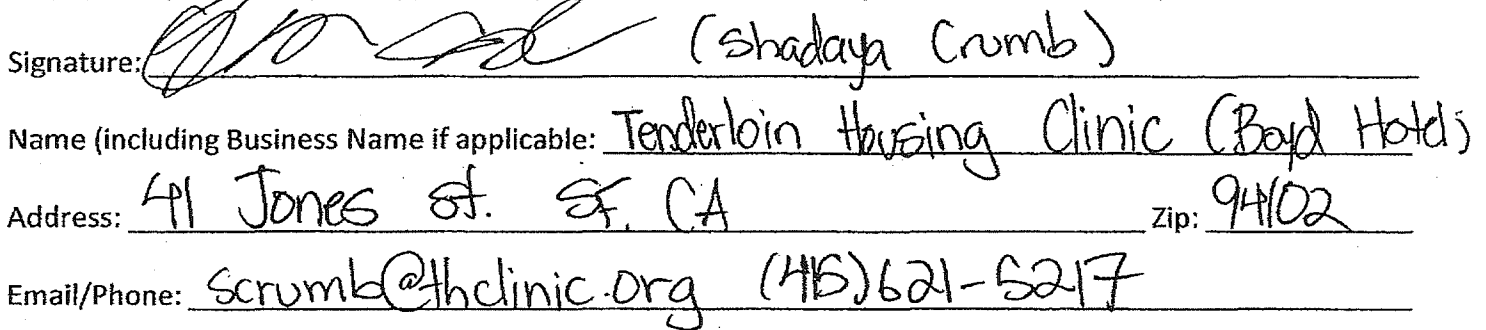 Signature: (Shadaya Crumb)
Name (including Business Name if applicable: Tenderloin Housing Clinic (Boyd Hotel)
Address: 41 Jones st. SF. CA Zip: 94102
Email/Phone: scrumb@thclinic.org (415)621-5217